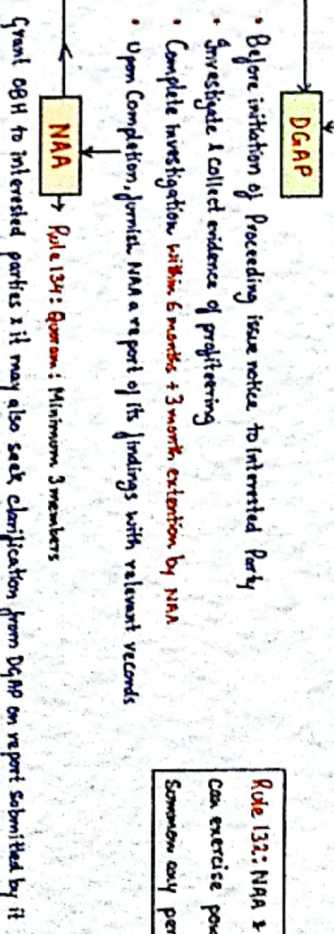 DGAP
• Before initiation of Proceeding issue notice to Interested Party
• Investigate & collect evidence of profiteering
• Complete Investigation within 6 months + 3 month extention by NAA
• Upon Completion, furnish NAA a report of its findings with relevant records
NAA → Rule 134: Quorom: Minimum 3 members
Grant OBH to interested parties & it may also seek clarification from DGAP on report submitted by it
Rule 132: NAA &
can exercise pow
Summon any per